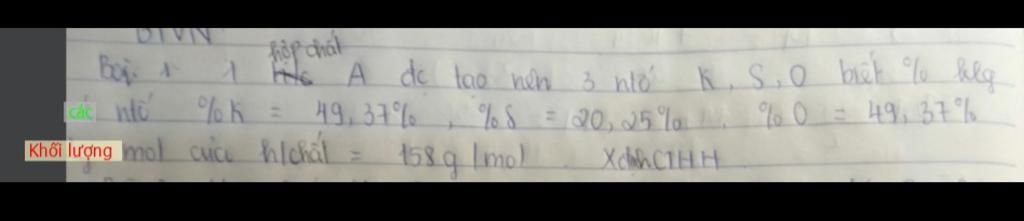 BTVN
hợp chất
Bài 1 1 A dc tạo nên 3 ntố K, S, O biết % klg
các ntố %K = 49,37%, %S = 20,25% %O = 49,37%
Khối lượng mol của h/chất = 158g/mol XchhCTHH